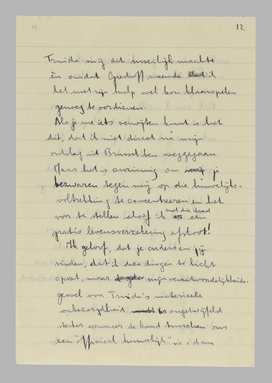 12
Truida mij dit moeilijk maakte
en omdat Greshoff meende dat ik
het met mijn hulp wel kon klaarspelen
genoeg te verdienen.
Als je me iets verwijten kunt is het
dit, dat ik niet direct na mijn
ontslag uit Brussel ben weggegaan.
Maar het is onzinnig om je
bezwaren tegen mij op die huwelijks-
voltrekking te concentreeren en het
voor te stellen alsof ik met die daad een
gratis levensverzekering afsloot!
Ik geloof, dat je anderzijds
vinden, dat ik deze dingen te licht
opvat, maar mijn verantwoordelijkheids-
gevoel voor Truida's materieele
onbezorgdheid is ongetwijfeld
sterker wanneer de band tusschen ons
een "officieel huwelijk" is dan